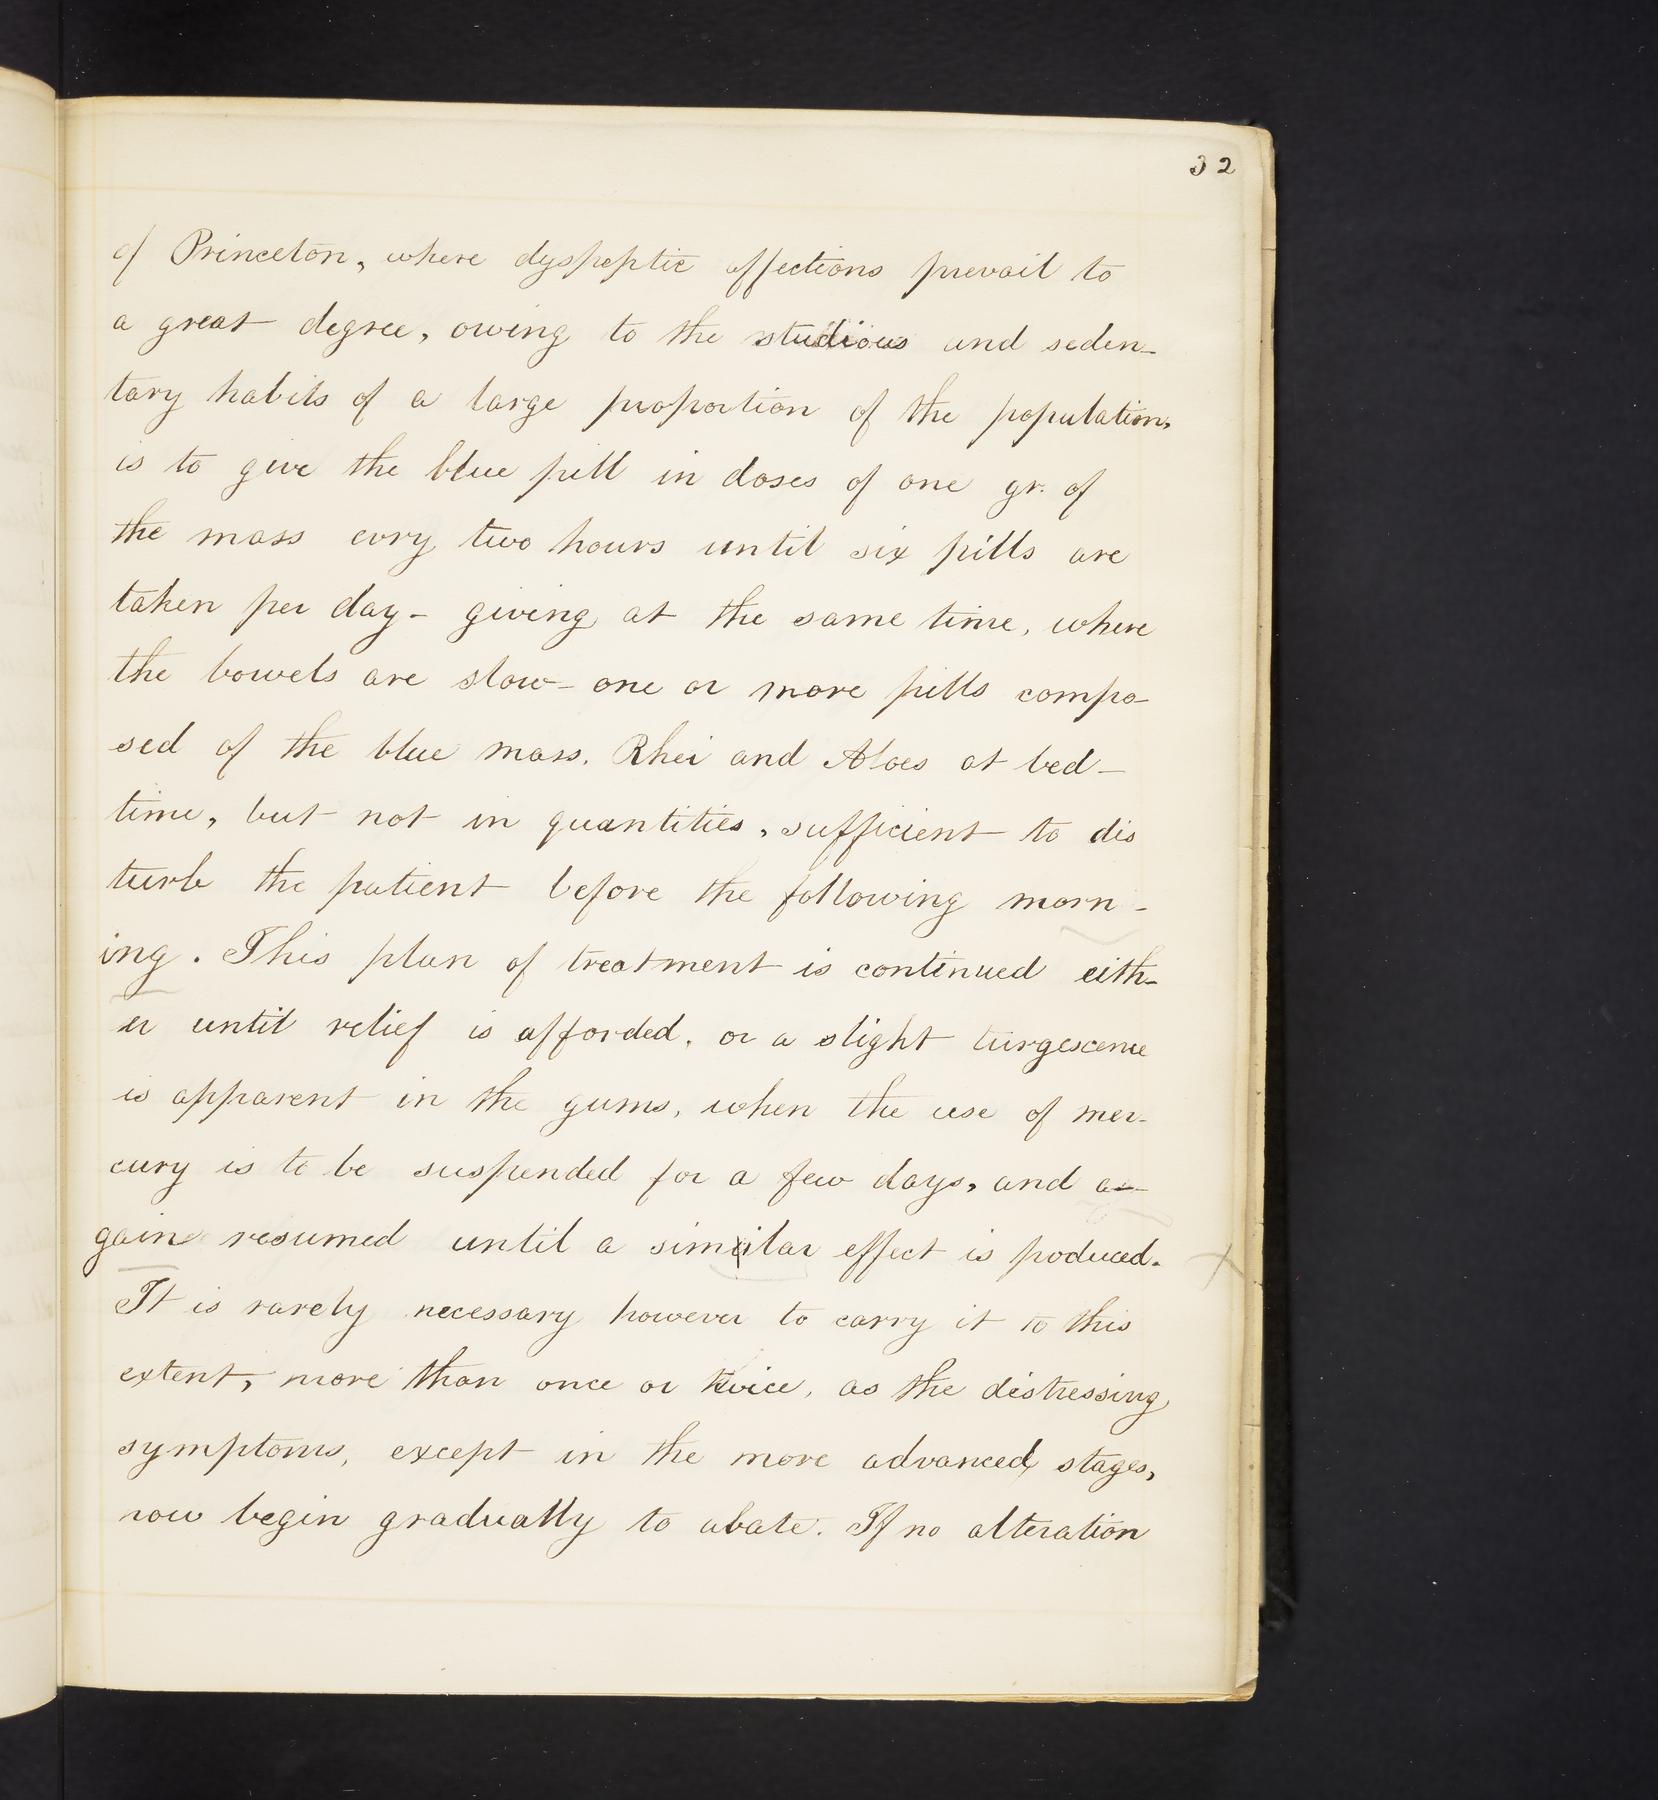 32
of Princeton, where dyspeptic affections prevail to
a great degree, owing to the studious and seden-
tary habits of a large proportion of the population,
is to give the blue pill in doses of one gr. of
the mass evry two hours until six pills are
taken per day - giving at the same time, where
the bowels are slow - one or more pills compo-
sed of the blue mass. Rhei and Aloes at bed-
time, but not in quantities, sufficient to dis
turb the patient before the following morn-
ing. This plan of treatment is continued eith-
er until relief is afforded, or a slight turgescence
is apparent in the gums, when the use of mer-
cury is to be suspended for a few days, and a-
gain resumed until a similar effect is poduced.
It is rarely necessary however to carry it to this
extent, more than once or twice, as the distressing
symptoms, except in the more advanced stages,
now begin gradually to abate. If no alteration